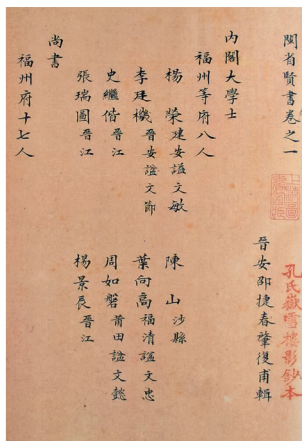 閩省賢書卷之一
孔氏嶽雪樓影鈔本
晉安邵捷春肇復甫輯
內閣大學士
福州等府八人
楊榮建安謚文敏
陳山沙縣
李廷機晉安謚文節
葉向高福清謚文忠
史繼偕晉江
周如磐莆田謚文懿
張瑞圖晉江
楊景辰晉江
尚書
福州府十七人